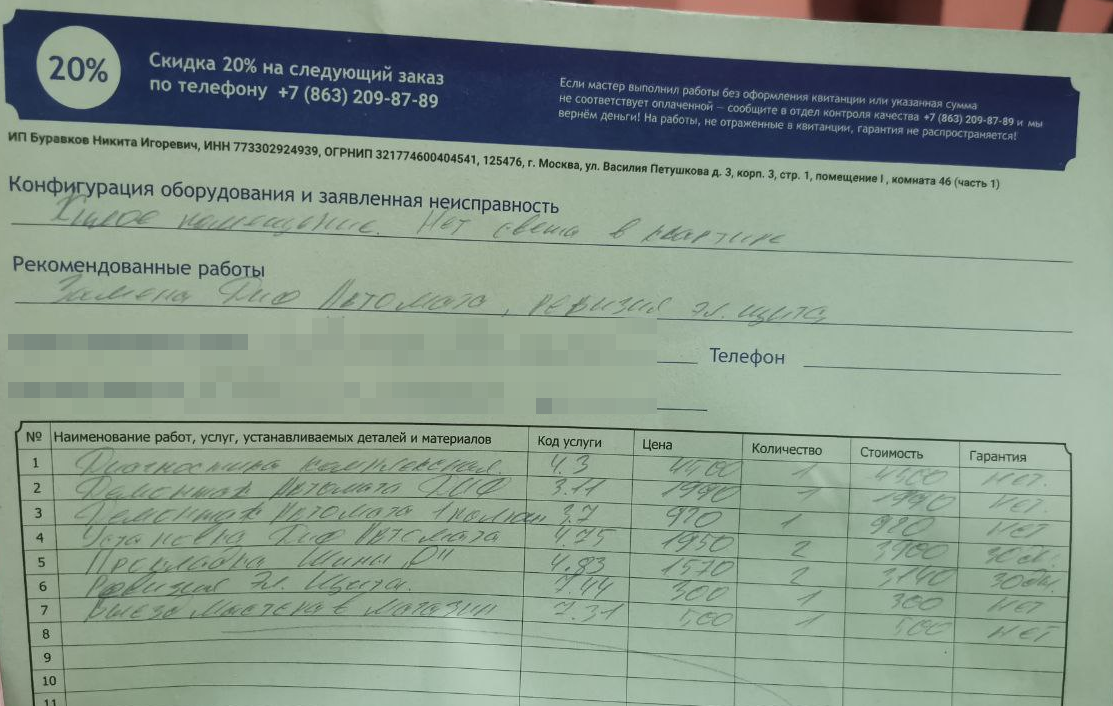 20%
Скидка 20% на следующий заказ
по телефону +7 (863) 209-87-89
Если мастер выполнил работы без оформления квитанции или указанная сумма
не соответствует оплаченной – сообщите в отдел контроля качества +7 (863) 209-87-89 и мы
вернём деньги! На работы, не отраженные в квитанции, гарантия не распространяется!
ИП Буравков Никита Игоревич, ИНН 773302924939, ОГРНИП 321774600404541, 125476, г. Москва, ул. Василия Петушкова д. 3, корп. 3, стр. 1, помещение I , комната 46 (часть 1)
Конфигурация оборудования и заявленная неисправность
Жилое помещение. Нет света в квартире
Рекомендованные работы
Замена Диф Автомата, ревизия эл. щита
Телефон
№ Наименование работ, услуг, устанавливаемых деталей и материалов Код услуги Цена Количество Стоимость Гарантия
1 Диагностика комплексная 4.3 4500 1 4500 нет.
2 Демонтаж Автомата ДИФ 3.11 1990 1 1990 нет.
3 Демонтаж Автомата 1 полюсн 3.7 920 1 920 нет
4 Установка Диф Автомата 4.75 1950 2 3900
5 Прокладка шины "0" 4.83 1570 2 3140
6 Ревизия Эл. Щита. 7.44 300 1 300 нет
7 Выезд мастера в магазин 7.31 500 1 500 нет
8
9
10
11